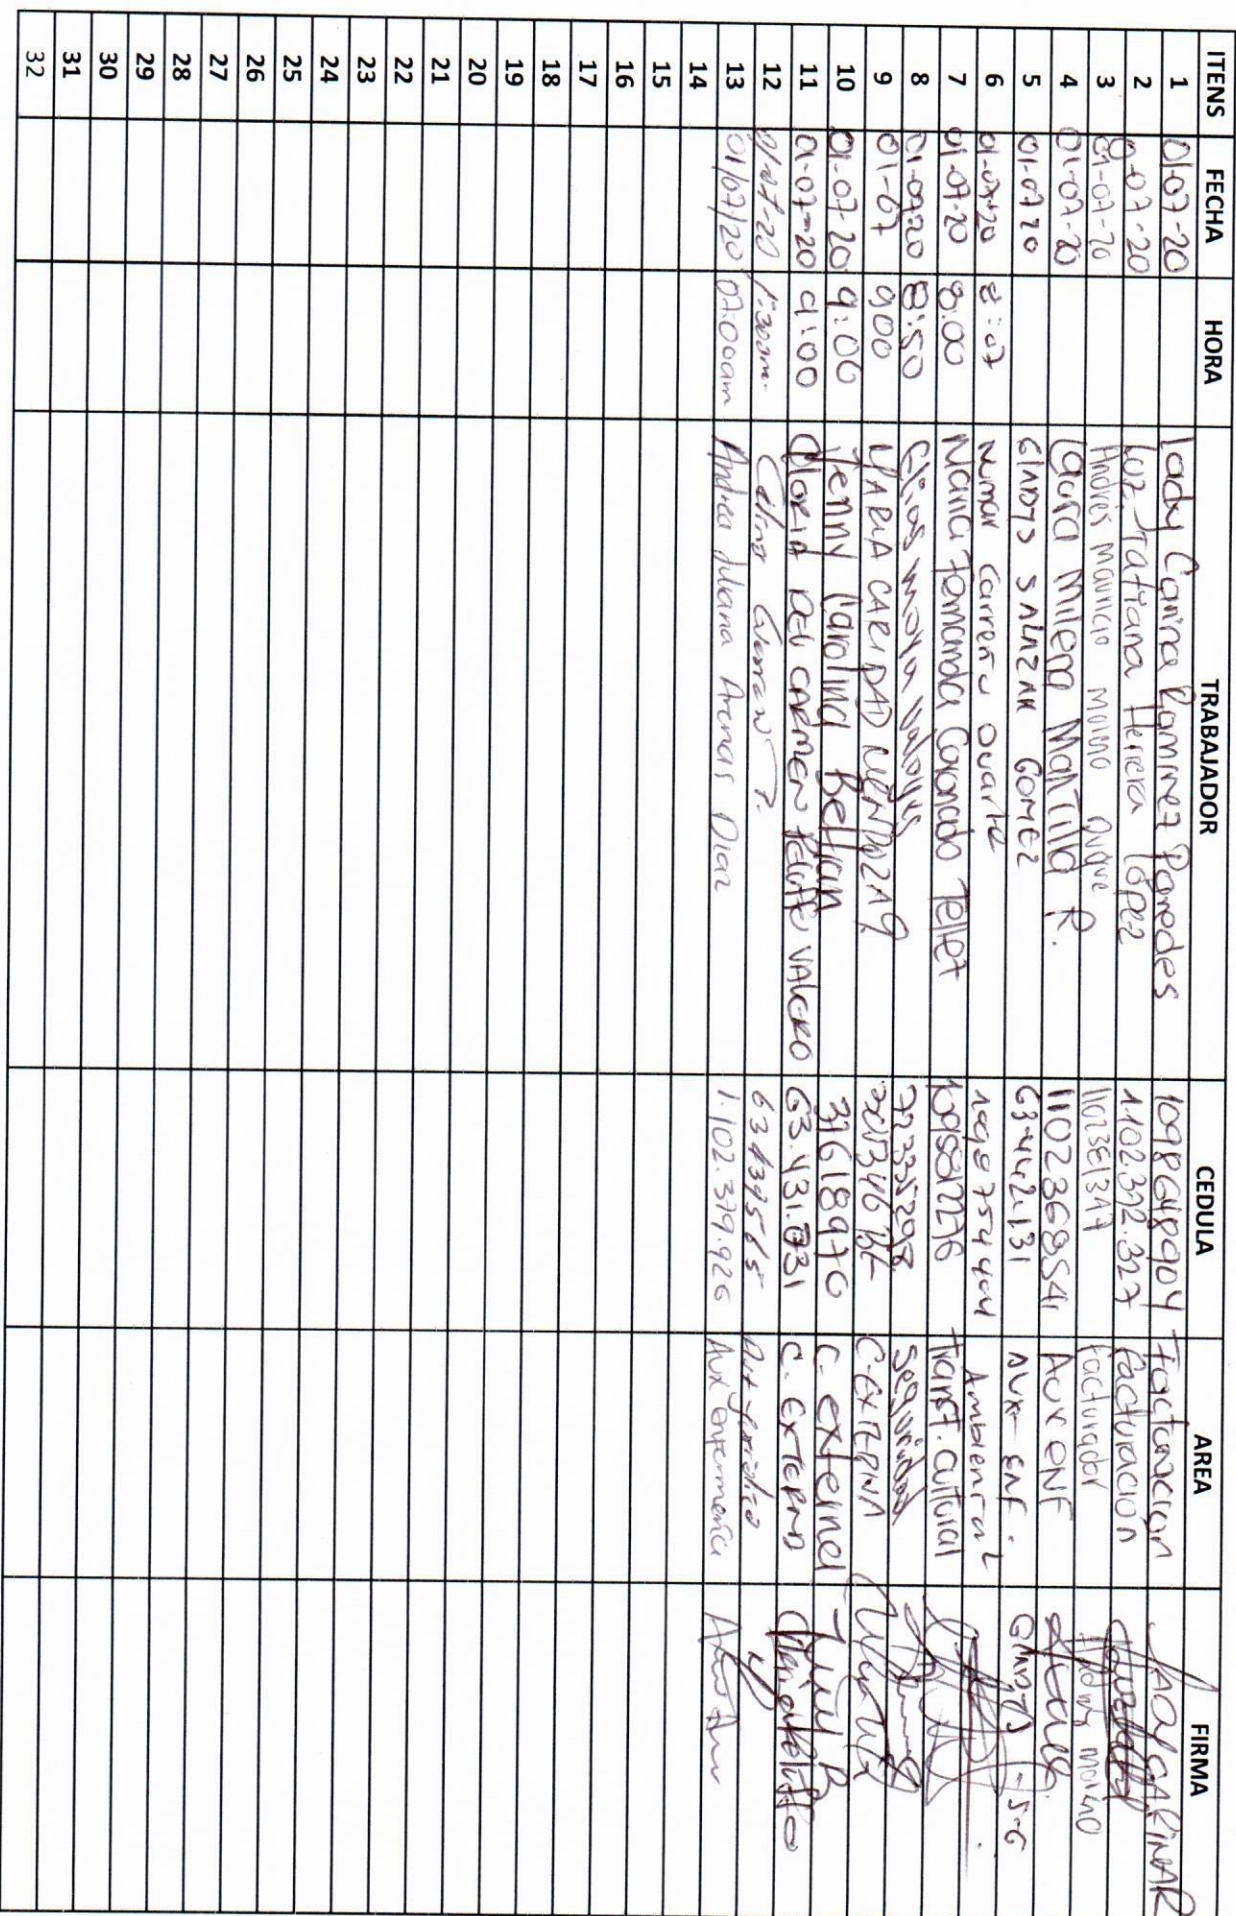 ITENS FECHA HORA TRABAJADOR CEDULA AREA FIRMA
1 01-07-20 lady Carina Ramirez Paredes 1098648904 Facturacion
2 01-07-20 Luz Tatiana Herrera López 1.102.372.327 facturación
3 01-07-20 Andres Mauricio Moreno Duque 1102381347 facturador Andres moreno
4 01-07-20 Laura Milena Mantilla R. 1102368854 Aux enf
5 01-07 20 GLADYS SALAZAR GOMEZ 63.442.131 AUX- ENF. GLADYS S-G
6 01-07-20 8:07 numar Carreño Duarte Ambiental
7 01-07-20 8:00 Maria Fernanda Coronado Tellez 1095812276 Transf. cultural
8 01-07-20 8:50 Elias moya 72335298 seguridad
9 01-07 900 MARIA CARIDAD MENDOZA C-EXTERNA
10 01-07-20 9:06 Jenny Carolina Beltran 31618970 C. externa
11 01-07-20 9:00 GLORIA DEL CARMEN PELUFFO VALERO 63.431.731 C. EXTERNA
12 01-07-20 1:30am. 63439565
13 01/07/20 07:00am Andrea Juliana Arenas Diaz 1.102.379.926 Aux enfermeria
14
15
16
17
18
19
20
21
22
23
24
25
26
27
28
29
30
31
32